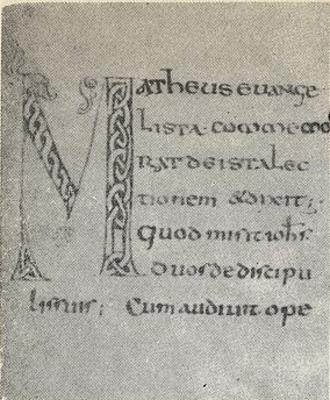 MATheus euange
Lista. commemo
RAT de ista Lec
tionem & dixit;
quod misit iohs
duos de discipu
lis suis; Cum audiuit ope